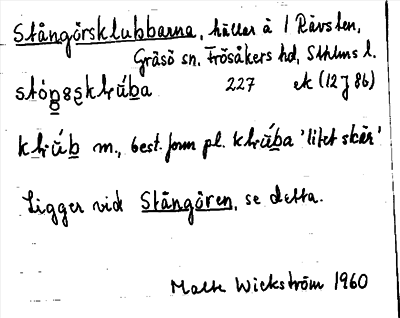 Stångörsklubbarna, hällar å 1 Rävsten,
Gräsö sn, Frösåkers hd, Sthlms l.
227 ek (12J 86)
m., best. form pl. 'litet skär'
Ligger vid Stångören, se detta.
Malte Wickström 1960